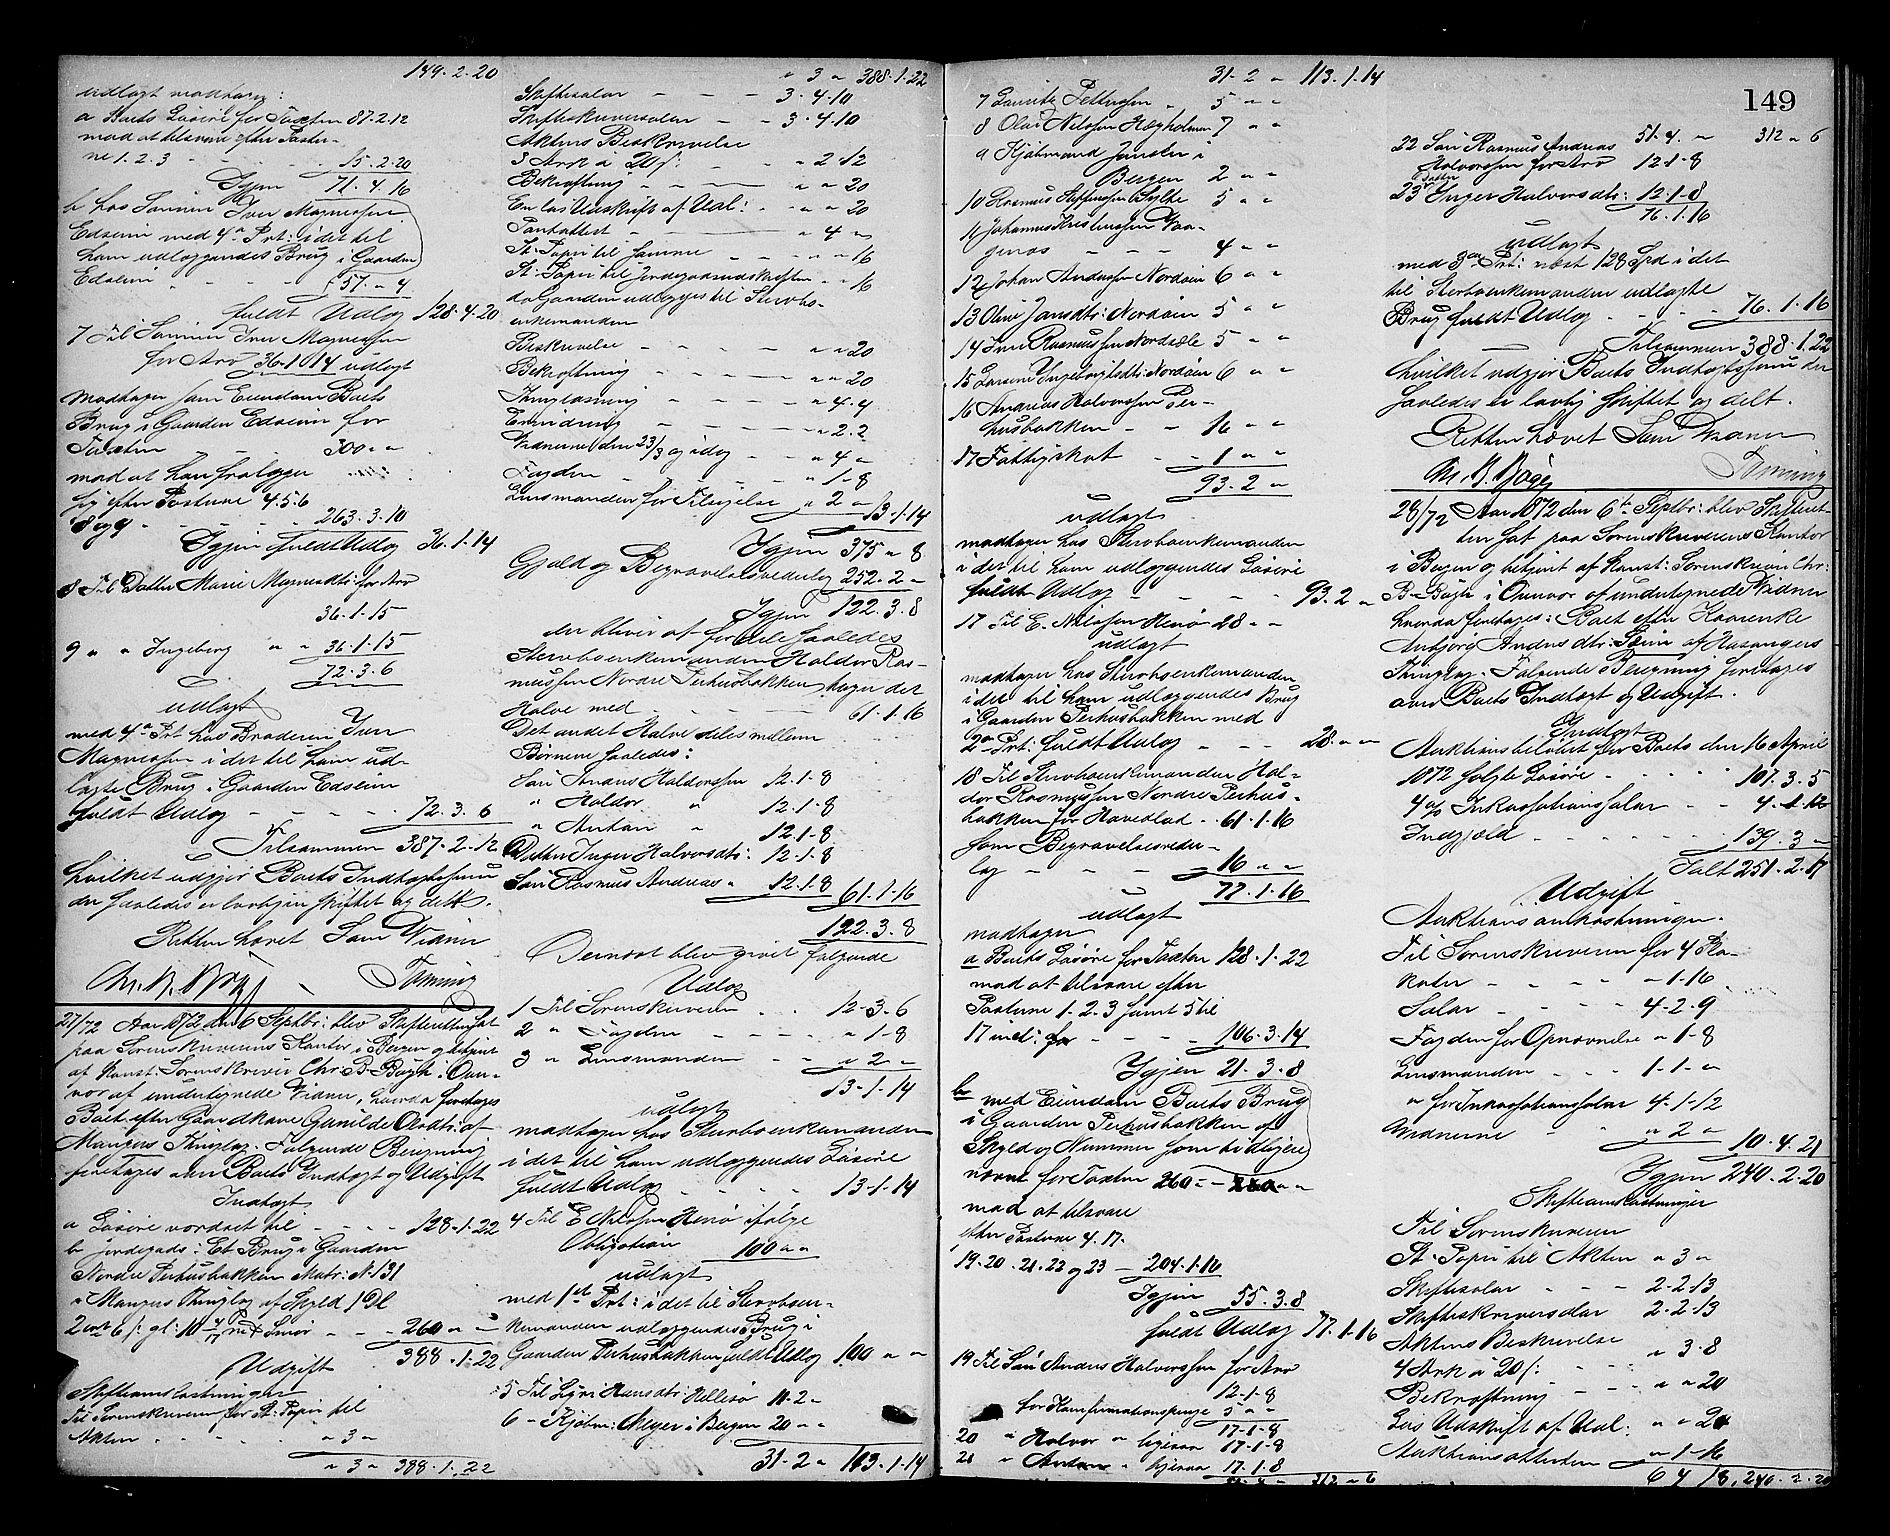 149-2-20
udlagt modtager:
a Boets Løsøre for Taxten 87-2-12
mod at tilsvare efter Poster-
ne 1.2.3 - - - 15-2-20
Igjen 71-4-16
b hos Sønnen Iver Magnessen
Edseim med 4de Prt: i det til
ham udlæggendes Brug i Gaarden
Edseim - - - 57-"-4
fuldt Udlæg 128-4-20
7 Til Sønnen Iver Magnessen
for Arv 36-1-14 udlagt
modtager som Eiendom Boets
Brug i Gaarden Edseim for
Taxten - 300-"-"
mod at han fralægger
sig efter Posterne 4.5.6
8 og 9 - - - 263-3-10
Igjen fuldt Udlæg 36-1-14
8 Til Datter Marie Magnesdtr: for Arv
36-1-15
9 " " Ingeborg " " 36-1-15
72-3-6
udlagt
med 4de Prt hos Broderen Iver
Magnessen i det til ham ud-
lagte Brug i Gaarden Edseim
fuldt Udlæg - - - 72-3-6
Tilsammen 387-2-12
hvilket udgjør Boets Indtægtssum
der saaledes er lovligen skiftet og delt.
Retten hævet Som Vidner
Chr. B. Bøgh
27/72 Aar 1872 den 6 Septbr: blev Skifteret sat
paa Sorenskriverens Kontor i Bergen og betjent
af Konst: Sorenskriver Chr: B. Bøgh i Over-
vær af undertegnede Vidner, hvorda foretoges
Boet efter Gaardkone Gunilde Olsdtr: af
Mangers Thinglag. Følgende Beregning
foretages over Boets Indtægt og Udgift
Indtægt
a Løsøre vorderet til - - - 128-1-22
b Jordegods: Et Brug i Gaarden
Nordre Perhusbakken Matr: N 131
i Mangers Thinglag af Skyld 1 Dl
2 ort 6 s: gl: 10 4/17 mk Smør - - 260-"-"
388-1-22
Udgift
Skifteomkostninger
Til Sorenskriveren for St: Papir til
Akten - - - "-3-"
"-3-" 388-1-22

"-3-" 388-1-22
Skiftesalær - - - 3-4-10
Skifteskriversalær - - 3-4-10
Aktens Beskrivelse
3 Ark à 20 s: - - "-2-12
Bekræftning - - - "-"-20
En løs Udskrift af Udl: - "-"-20
Pantattest - - "-4-"
St: Papir til samme - - "-"-16
St: Papir til Jordegodsudskriften - "-"-16
da Gaarden udlægges til Stervbo-
enkemanden
Beskrivelse - - - "-"-20
Bekræftning - - - "-"-20
Thinglæsning - - - "-4-4
Erindring - - - "-2-2
Vidnerne den 23/3 og idag - - "-4-"
Fogden - - - "-1-8
Lensmanden for Tilsigelse "-2-" 13-1-14
Igjen 375-"-8
Gjeld og Begravelsesvederlag 252-2-"
Igjen 122-3-8
der bliver at fordele saaledes
Stervboenkemanden Haldor Ras-
mussen Nordre Perhusbakken tager det
Halve med - - - 61-1-16
Det andet Halve deles mellem
Børnene saaledes:
Søn Anders Haldorssen 12-1-8
" Haldor " 12-1-8
" Anton " 12-1-8
Datter Inger Halvorsdtr: 12-1-8
Søn Rasmus Andreas " 12-1-8 61-1-16
122-3-8
Dernæst blev givet følgende
Udlæg
1 Til Sorenskriveren - - 12-3-6
2 " Fogden - - - "-1-8
3 " Lensmanden - - - "-2-"
13-1-14
udlagt
modtager hos Stervboenkemanden
i det til ham udlæggendes Løsøre
fuldt Udlæg - - - 13-1-14
4 Til E Nilssen Herø ifølge
Obligation 100-"-"
udlagt
med 1ste Prt: i det til Stervboen-
kemanden udlæggendes Brug i
Gaarden Perhusbakken fuldt Udlæg 100-"-"
5 Til Hansdtr: Hellesø 11-2-"
6 - Kjøbm: Meyer i Bergen 20-"-"
31-2-" 113-1-14

31-2-" 113-1-14
7 Petterssen - 5-"-"
8 Olai Nilssen Hægholmen 7-"-"
9 Kjøbmand Jansen i
Bergen 2-"-"
10 Rasmus Sylte 5-"-"
11 Johannes Kristenssen Vaa-
genæs - - - 4-"-"
12 Johan Anderssen Nordøen 6-"-"
13 Oline Jansdtr: Nordøen 5-"-"
14 Iver Rasmussen 5-"-"
15 Larsine Ingeborgsdtr: Nordøen 6-"-"
16 Andreas Halvorssen Per-
husbakken - - 16-"-"
17 Fattigskat - - 1-"-"
93-2-"
udlagt
modtager hos Stervboenkemanden
i det til ham udlæggendes Løsøre
fuldt Udlæg - - - 93-2-"
17 Til E. Nilssen Herø 28-"-"
udlagt
modtager hos Stervboenkemanden
i det til ham udlæggendes Brug
i Gaarden Perhusbakken med
2den Prt: fuldt Udlæg - - - 28-"-"
18 Til Stervboenkemanden Hal-
dor Rasmussen Nordre Perhus-
bakken for Hovedlod - 61-1-16
som Begravelsesveder-
lag - - - 16-"-"
77-1-16
udlagt
modtager
a Boets Løsøre for Taxten 128-1-22
mod at tilsvare efter
Posterne 1-2-3 samt 5 til
17 incl: for - - - 106-3-14
Igjen 21-3-8
b med Eiendom Boets Brug
i Gaarden Perhusbakken af
Skyld og Nummer som tidligere
nævnt for Taxten 260-"-"
mod at tilsvare
efter Posterne 4.17.
19-20-21-22 og 23 - 204-1-16
Igjen 55-3-8
fuldt Udlæg 77-1-16
19 Til Søn Anders Halvorssen for Arv
12-1-8
for Konfirmationspenge 5-"-"
17-1-8
20 " Halvor " ligesaa 17-1-8
21 " Anton " ligesaa 17-1-8
51-4-" 312-"-6

149
51-4-" 312-"-6
22 Søn Rasmus Andreas
Halvorssen for Arv 12-1-8
23 Datter Inger Halvorsdtr: 12-1-8
76-1-16
udlagt
med 3die Prt: næst 128 Spd i det
til Stervboenkemanden udlagte
Brug fuldt Udlæg - - - 76-1-16
Tilsammen 388-1-22
hvilket udgjør Boets Indtægtssum der
saaledes er lovlig skiftet og delt.
Retten hævet Som Vidner
Chr. B. Bøgh
28/72 Aar 1872 den 6te Septbr: blev Skifteret-
ten sat paa Sorenskriverens Kontor
i Bergen og betjent af Konst: Sorenskriver Chr:
B. Bøgh i Overvær af undertegnede Vidner
hvorda foretoges: Boet efter Kaarenke
Anbjørg Andersdtr: Sæim af Hosangers
Thinglag. Følgende Beregning foretages
over Boets Indtægt og Udgift.
Indtægt
Auktionsbeløbet for Boets den 16 April
1872 solgte Løsøre - - - 107-3-5
4 % Inkassationssalær - - 4-1-12
Indgjæld - - - 139-3-"
Talt 251-2-17
Udgift
Auktionsomkostninger.
Til Sorenskriveren for 4 Pla-
kater - - - "-1-16
Salær - - - 4-2-9
Fogden for Opnævnelse "-1-8
Lensmanden - - - 1-1-"
" for Inkassationssalær 4-1-12
Vidnerne - - "-2-" 10-4-21
Igjen 240-2-20
Skifteomkostninger
Til Sorenskriveren
St: Papir til Akten "-3-"
Skiftesalær - - 2-2-13
Skifteskriversalær 2-2-13
Aktens Beskrivelse
4 Ark à 20 s: - - "-3-8
Bekræftning - - - "-"-20
Løs Udskrift af Udl: "-"-20
Auktionsattesten "-1-16
6 4 18. 240-2-20